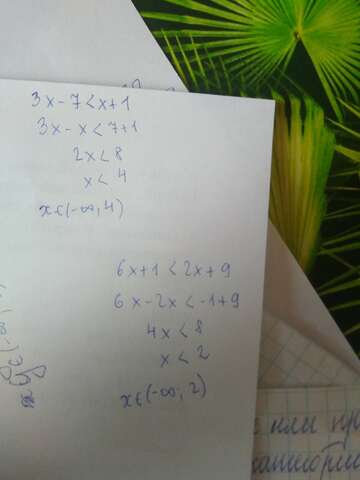 3x-7<x+1
3x-x<7+1
2x<8
x<4
x∈(-∞,4)
6x+1<2x+9
6x-2x<-1+9
4x<8
x<2
x∈(-∞;2)
или пр